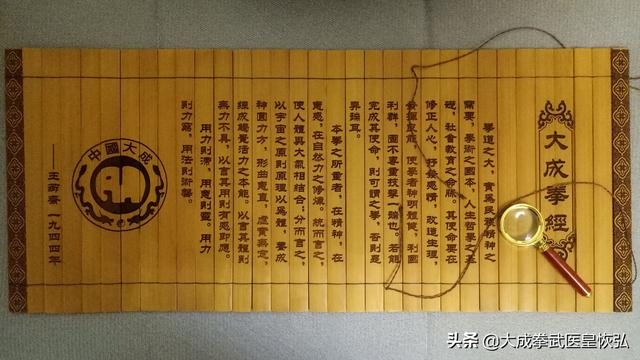 大成拳經
拳道之大，實為民族精神之
需要，學術之國本，人生哲學之基
礎，社會教育之命脈。其使命要在
修正人心，抒發感情，改造生理，
發揮良能，使學者神明體健，利國
利群，固不專重技擊一端也。若能
完成其使命，則可謂之拳，否則是
異端耳。
本拳之所重者，在精神，在
意感，在自然力之修煉。統而言之，
使人體與大氣相結合；分而言之，
以宇宙之原則原理以為體，養成
神圓力方，形曲意直，虛實無定，
鍛成觸覺活力之本能。以言其體則
無力不具，以言其用則有感即應。
用力則滯，用意則靈。用力
則力窮，用法則術罄。
中國大成
——王薌齋 一九四四年
头条 @大成拳武医皇恢弘